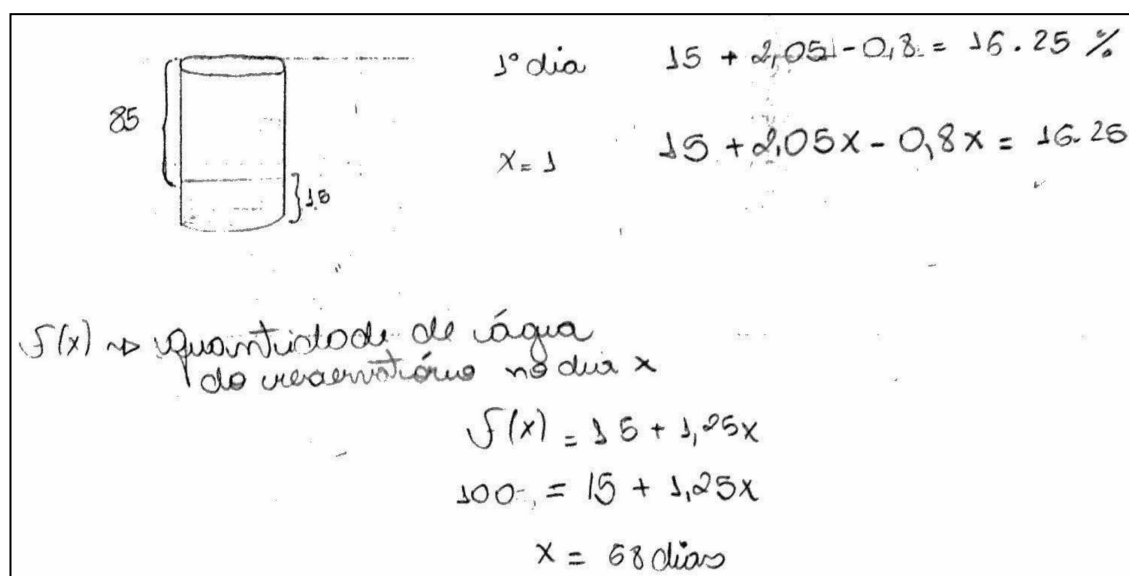 85
15
1º dia 15 + 2,05 - 0,8 = 16.25 %
x = 1 15 + 2,05x - 0,8x = 16.25
f(x) → quantidade de água
do reservatório no dia x
f(x) = 15 + 1,25x
100 = 15 + 1,25x
x = 68 dias